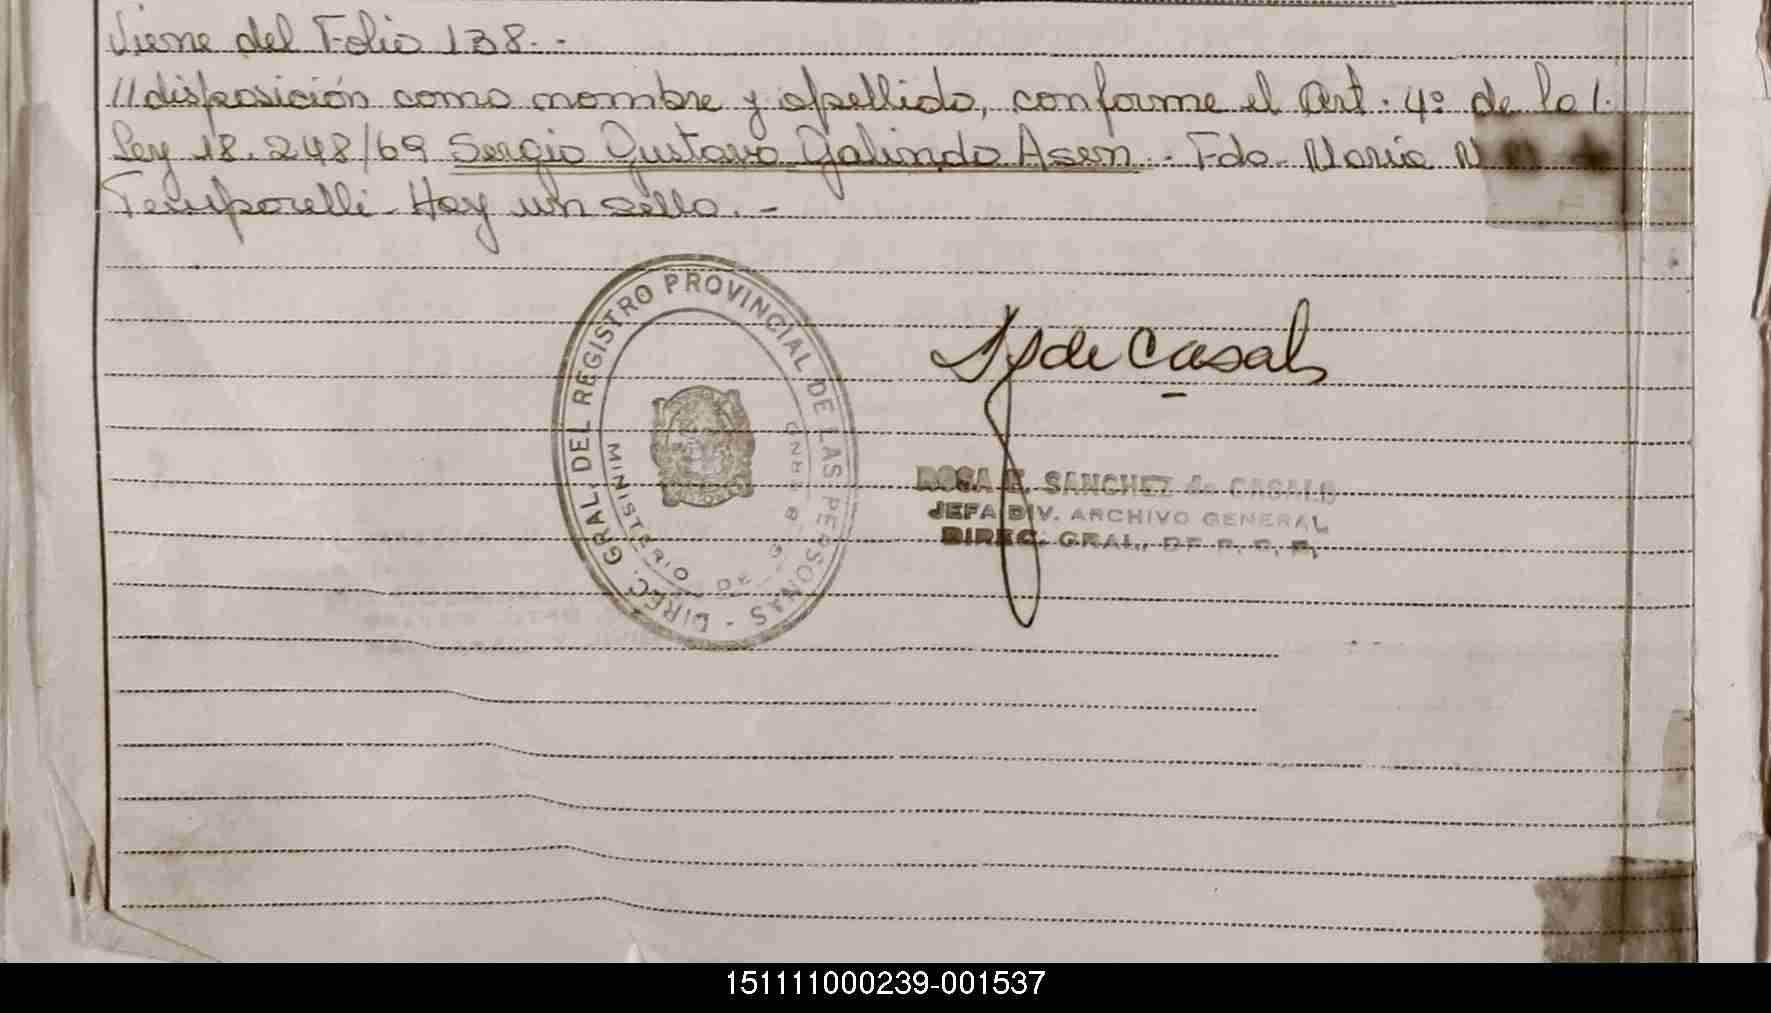 Viene del Folio 138.-
//disposición como nombre y apellido, conforme el Art. 4º de la /.
Ley 18.248/69 Sergio Gustavo Galindo Asem.- Fdo. María
Temporelli- Hay un sello.-
DIREC. GRAL. DEL REGISTRO PROVINCIAL DE LAS PERSONAS -
MINISTERIO DE
de Casals
ROSA E. SANCHEZ de CASALS
JEFA DIV. ARCHIVO GENERAL
DIREC. GRAL. DE R. C. P.
151111000239-001537